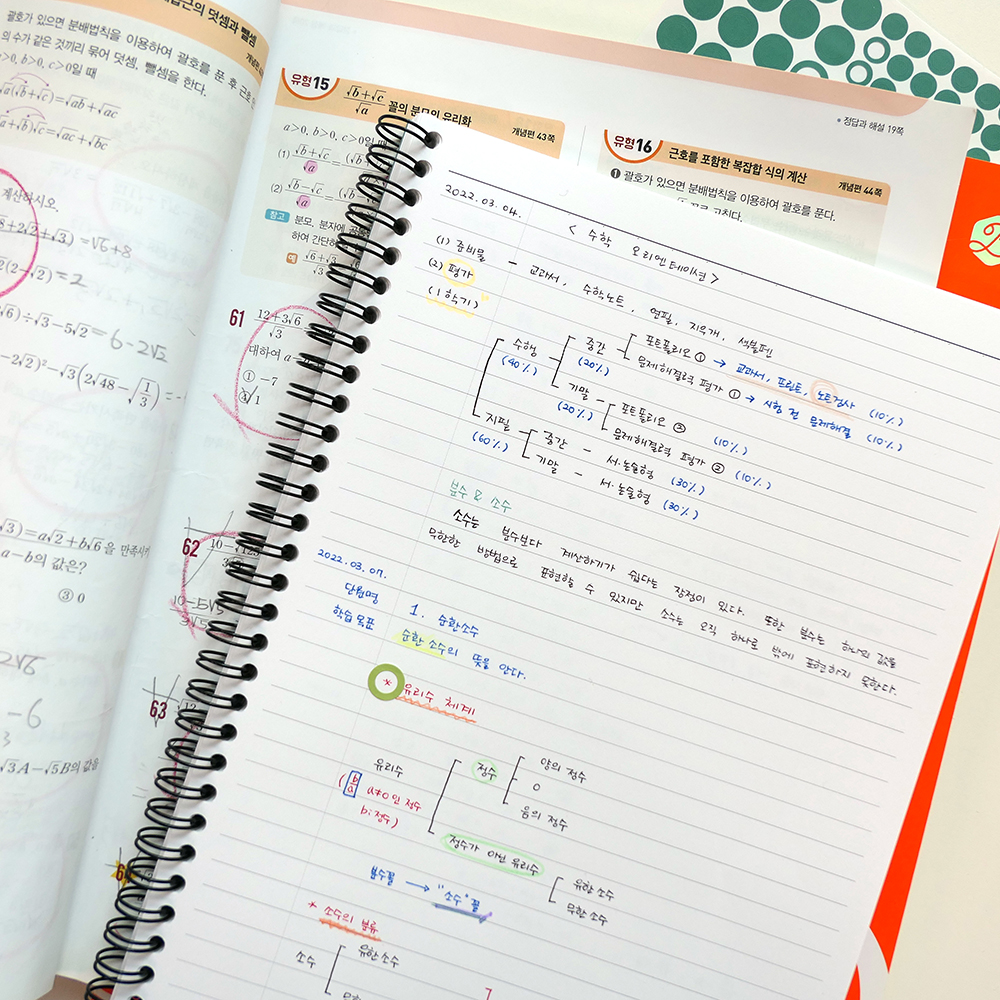 법근의 덧셈과 뺄셈
괄호가 있으면 분배법칙을 이용하여 괄호를 푼 후 근호
의 수가 같은 것끼리 묶어 덧셈, 뺄셈을 한다.
>0, b>0, c>0일 때
√a(√b+√c)=√ab+√ac
(√a+√b)√c=√ac+√bc
계산하시오.
=√6+8
(2-√2) = 2
√6)÷√3-5√2 = 6-2√2
-2√2)²-√3(2√48-√(1/3))=
√3)=a√2+b√6을 만족시키
a-b의 값은?
③ 0
2√6
-6
3
√3A-√5B의 값을
유형15
(√b+√c)/√a 꼴의 분모의 유리화
개념편 43쪽
a>0, b>0, c>0일
(1) (√b+√c)/√a
(2) (√b-√c)/√a
참고 분모, 분자에
하여 간단히
예 (√6+√3)/√3
61 (12+3√6)/√3
대하여 a
① -7
④ 1
62
63
정답과 해설 19쪽
유형16
근호를 포함한 복잡합 식의 계산
개념편 44쪽
❶ 괄호가 있으면 분배법칙을 이용하여 괄호를 푼다.
2022.03.04.
< 수학 오리엔테이션 >
(1) 준비물 - 교과서, 수학노트, 연필, 지우개, 색볼펜
(2) 평가
(1학기)
수행 (40%)
중간 (20%)
포트폴리오 ① → 교과서, 프린트, 노트검사 (10%)
문제해결력 평가 ① → 시험 전 문제해결 (10%)
기말 (20%)
포트폴리오 ② (10%)
문제해결력 평가 ② (10%)
지필 (60%)
중간 - 서·논술형 (30%)
기말 - 서·논술형 (30%)
분수 & 소수
소수는 분수보다 계산하기가 쉽다는 장점이 있다. 또한 분수는 하나의 값을
무한한 방법으로 표현할 수 있지만 소수는 오직 하나로 밖에 표현하지 못한다.
2022.03.07.
단원명 1. 순환소수
학습 목표 순환 소수의 뜻을 안다.
* 유리수 체계
유리수
(b/a a≠0인 정수
b: 정수)
정수
양의 정수
0
음의 정수
정수가 아닌 유리수
유한 소수
무한 소수
분수꼴 → "소수"꼴
* 소수의 분류
소수
유한소수